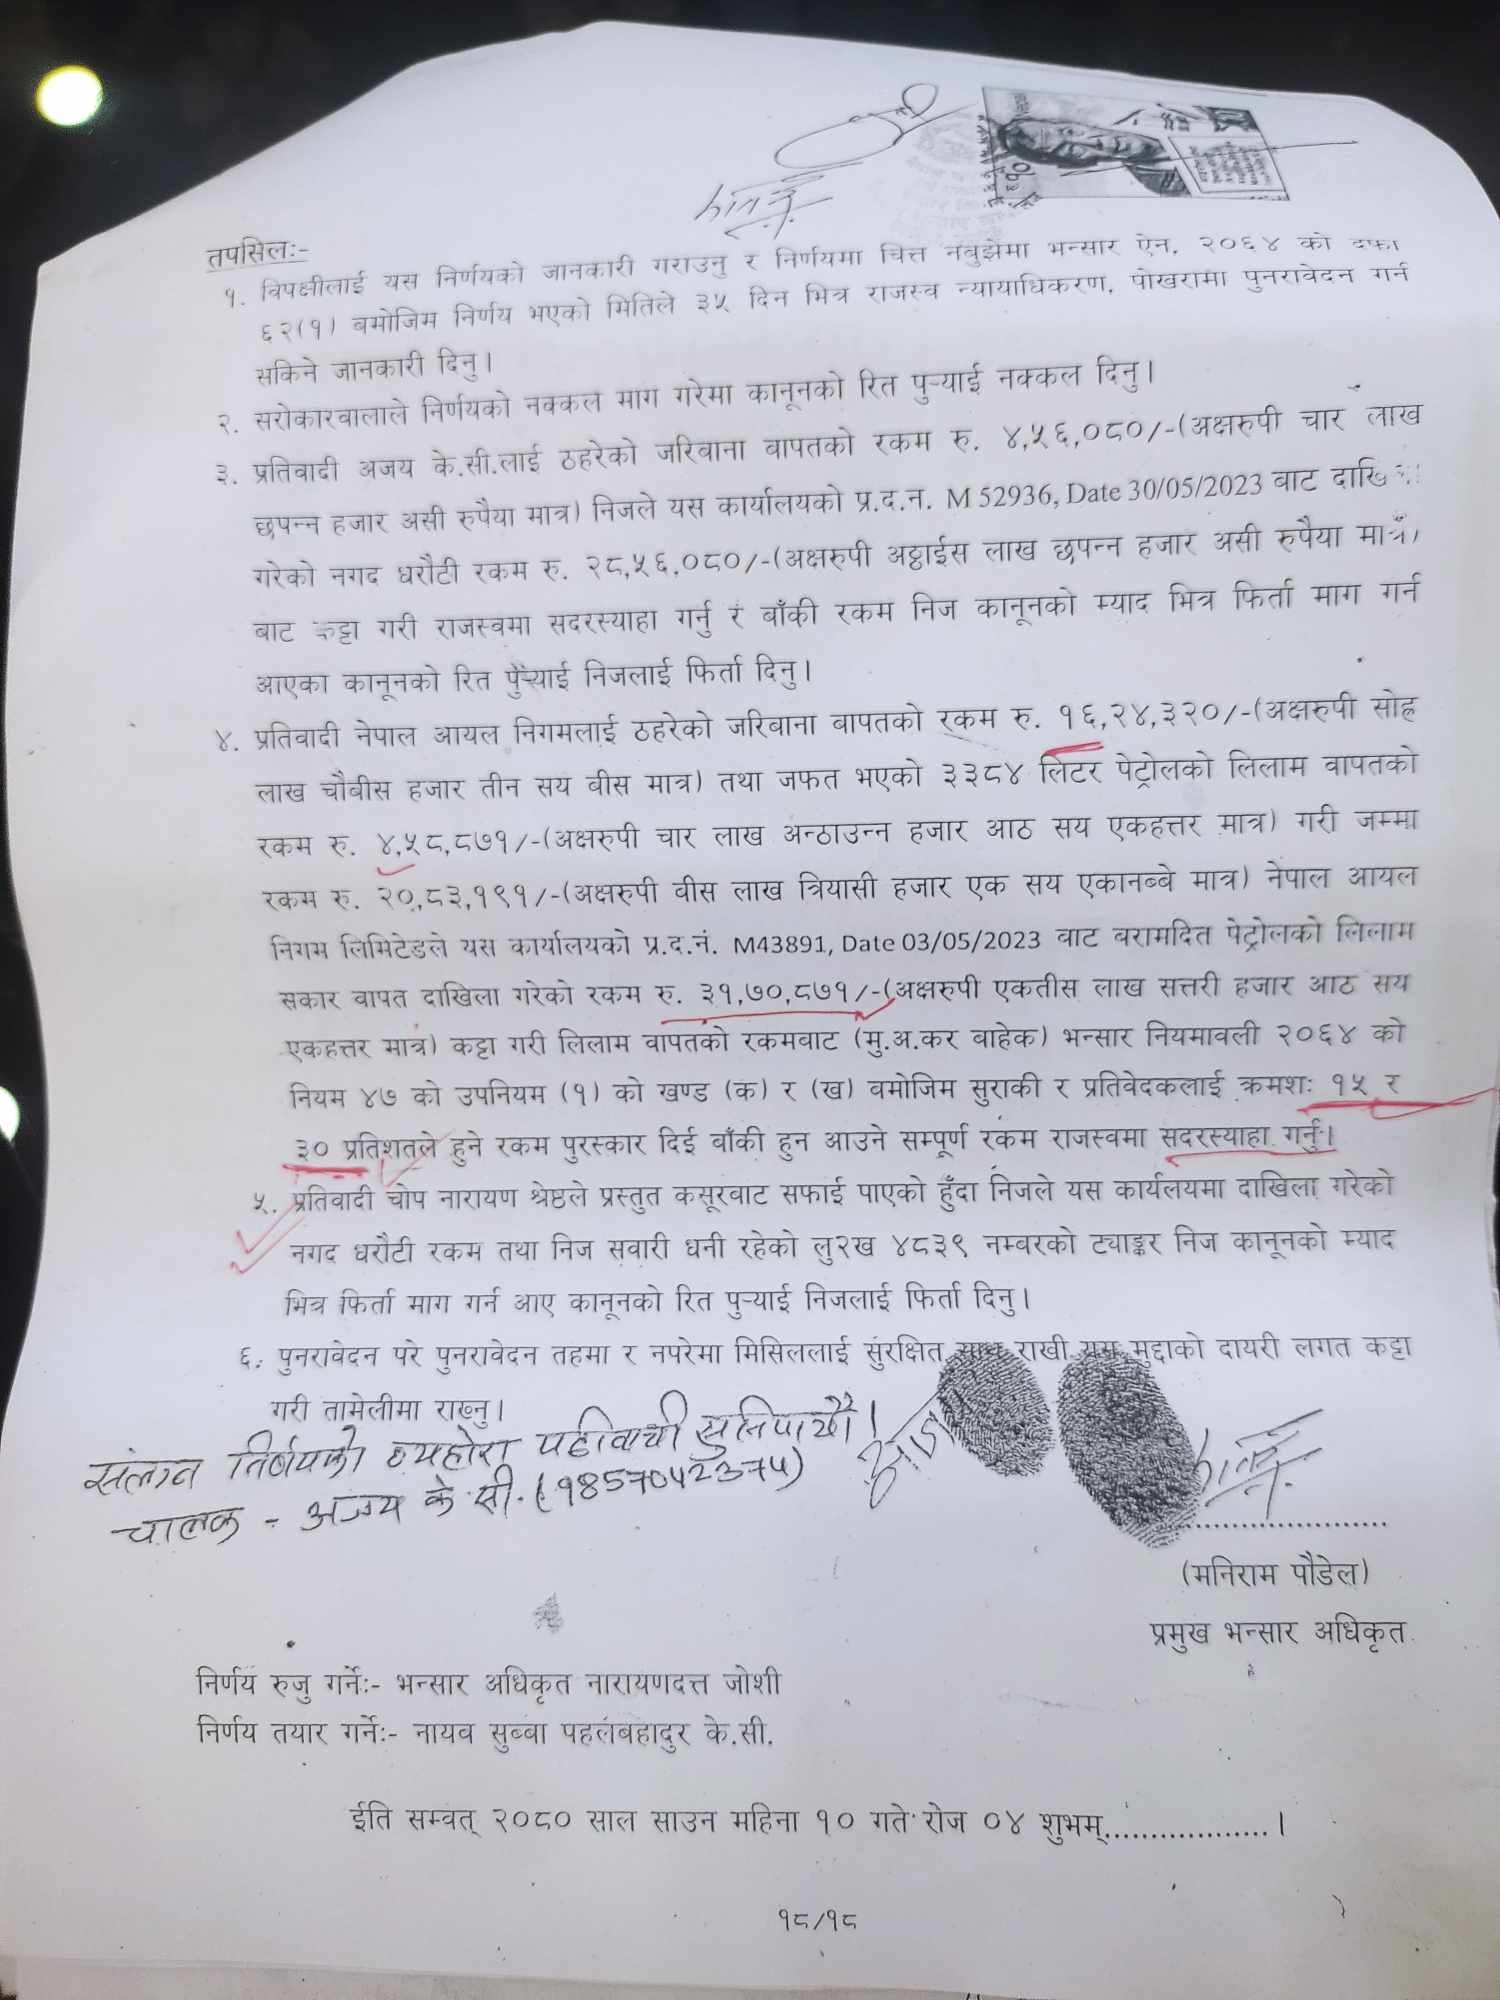 तपसिलः-
१. विपक्षीलाई यस निर्णयको जानकारी गराउनु र निर्णयमा चित्त नबुझेमा भन्सार ऐन, २०६४ को दफा
६२(१) बमोजिम निर्णय भएको मितिले ३५ दिन भित्र राजस्व न्यायाधिकरण, पोखरामा पुनरावेदन गर्न
सकिने जानकारी दिनु।
२. सरोकारवालाले निर्णयको नक्कल माग गरेमा कानूनको रित पुऱ्याई नक्कल दिनु।
३. प्रतिवादी अजय के.सी.लाई ठहरेको जरिवाना वापतको रकम रु. ४,५६,०८०/-(अक्षरुपी चार लाख
छपन्न हजार असी रुपैया मात्र) निजले यस कार्यालयको प्र.द.न. M 52936, Date 30/05/2023 बाट
गरेको नगद धरौटी रकम रु. २८,५६,०८०/-(अक्षरुपी अठ्ठाईस लाख छपन्न हजार असी रुपैया मात्र)
बाट कट्टा गरी राजस्वमा सदरस्याहा गर्नु र बाँकी रकम निज कानूनको म्याद भित्र फिर्ता माग गर्न
आएका कानूनको रित पुऱ्याई निजलाई फिर्ता दिनु।
४. प्रतिवादी नेपाल आयल निगमलाई ठहरेको जरिबाना बापतको रकम रु. १६,२४,३२०/-(अक्षरुपी सोह्र
लाख चौबीस हजार तीन सय बीस मात्र) तथा जफत भएको ३३८४ लिटर पेट्रोलको लिलाम वापतको
रकम रु. ४,५८,८७१/-(अक्षरुपी चार लाख अन्ठाउन्न हजार आठ सय एकहत्तर मात्र) गरी जम्मा
रकम रु. २०,८३,१९१/-(अक्षरुपी वीस लाख त्रियासी हजार एक सय एकानब्बे मात्र) नेपाल आयल
निगम लिमिटेडले यस कार्यालयको प्र.द.नं. M43891, Date 03/05/2023 बाट बरामदित पेट्रोलको लिलाम
सकार वापत दाखिला गरेको रकम रु. ३१,७०,८७१/-(अक्षरुपी एकतीस लाख सत्तरी हजार आठ सय
एकहत्तर मात्र) कट्टा गरी लिलाम वापतको रकमबाट (मु.अ.कर बाहेक) भन्सार नियमावली २०६४ को
नियम ४७ को उपनियम (१) को खण्ड (क) र (ख) बमोजिम सुराकी र प्रतिवेदकलाई क्रमशः १५ र
३० प्रतिशतले हुने रकम पुरस्कार दिई बाँकी हुन आउने सम्पूर्ण रकम राजस्वमा सदरस्याहा गर्नु।
५. प्रतिवादी चोप नारायण श्रेष्ठले प्रस्तुत कसूरबाट सफाई पाएको हुँदा निजले यस कार्यलयमा दाखिला गरेको
नगद धरौटी रकम तथा निज सवारी धनी रहेको लु२ख ४८३९ नम्बरको ट्याङ्कर निज कानूनको म्याद
भित्र फिर्ता माग गर्न आए कानूनको रित पुऱ्याई निजलाई फिर्ता दिनु।
६. पुनरावेदन परे पुनरावेदन तहमा र नपरेमा मिसिललाई सुरक्षित साथ राखी यस मुद्दाको दायरी लगत कट्टा
गरी तामेलीमा राख्नु।
संलग्न निर्णयको व्यहोरा पढीवाची सुनिपायौं।
चालक - अजय के.सी. (9857042374)
(मनिराम पौडेल)
प्रमुख भन्सार अधिकृत
निर्णय रुजु गर्नेः- भन्सार अधिकृत नारायणदत्त जोशी
निर्णय तयार गर्नेः- नायव सुब्बा पहलबहादुर के.सी.
ईति सम्वत् २०८० साल साउन महिना १० गते रोज ०४ शुभम्...................।
१८/१८